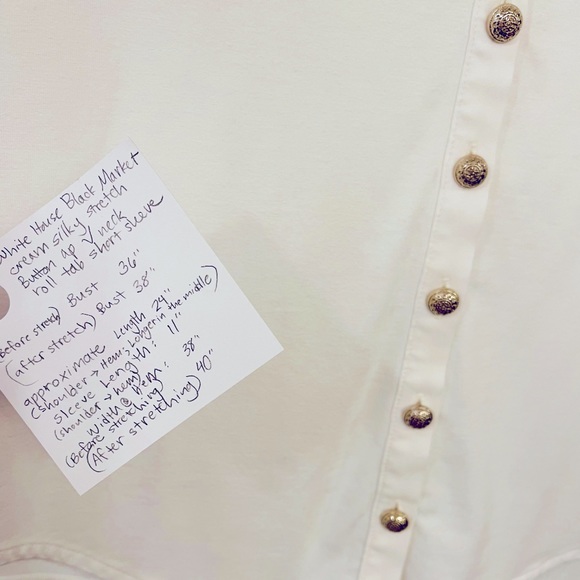 White House Black Market
cream silky stretch
Button up V neck
roll tab short sleeve
(Before stretch) Bust 36"
(after stretch) Bust 38"
approximate Length 24"
(shoulder → Hem: Longer in the middle)
Sleeve Length: 11"
(shoulder → hem)
Width @ Hem: 38"
(Before stretching)
(After stretching) 40"